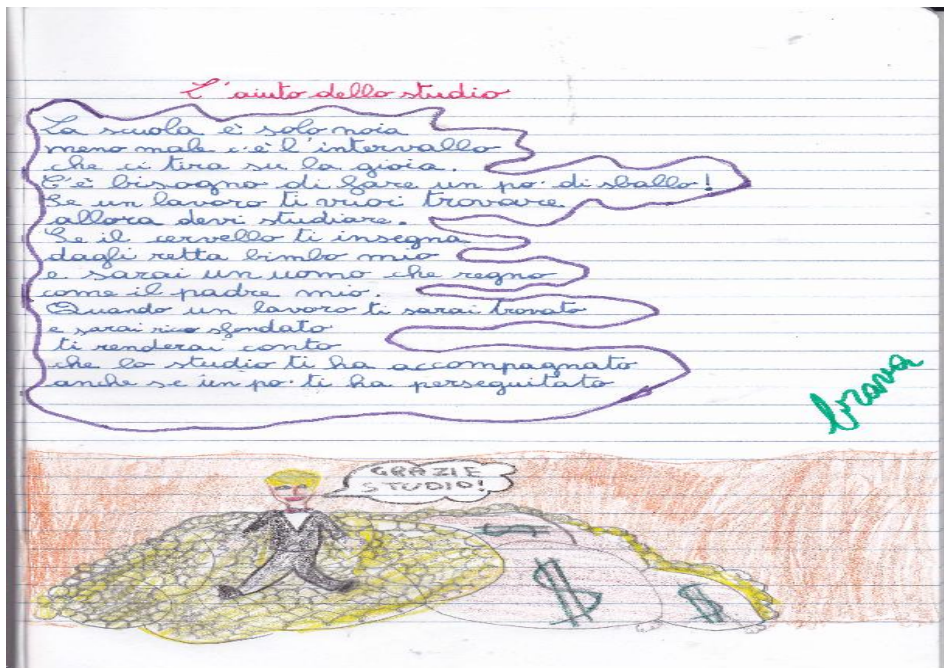 L'aiuto dello studio
La scuola è solo noia
meno male c'è l'intervallo
che ci tira su la gioia.
C'è bisogno di fare un po' di sballo!
Se un lavoro ti vuoi trovare
allora devi studiare.
Se il cervello ti insegna
dagli retta bimbo mio
e sarai un uomo che regno
come il padre mio.
Quando un lavoro ti sarai trovato
e sarai ricco sfondato
ti renderai conto
che lo studio ti ha accompagnato
anche se un po' ti ha perseguitato
brava
GRAZIE
STUDIO!
$
$